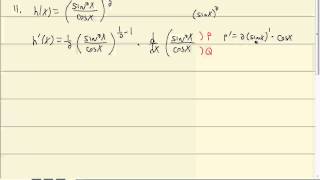 11. h(x) = (sin²x / cosx)^½ (sinx)²
h'(x) = ½ (sin²x / cosx)^(½-1) · d/dx (sin²x / cosx) )P )Q P' = 2(sinx)' · cosx